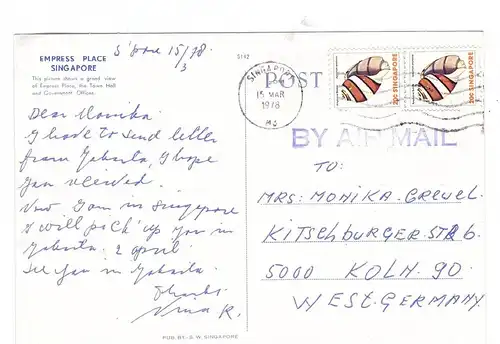 S'pore 15/3 78
EMPRESS PLACE
SINGAPORE
This picture shows a grand view
of Empress Place, the Town Hall
and Government Offices.
5142
POST
SINGAPORE
15 MAR
1978
20c SINGAPORE
20c SINGAPORE
BY AIR MAIL
Dear Monika
I have to send letter
from Jakarta, I hope
you received.
Now I am in Singapore
I will pick up you in
Jakarta 2 april.
See you in Jakarta.
Thanks
TO:
MRS: MONIKA. GREWEL.
KITSCHBURGERSTR
5000 KOLN. 90.
WEST. GERMANY
PUB. BY:- S. W. SINGAPORE